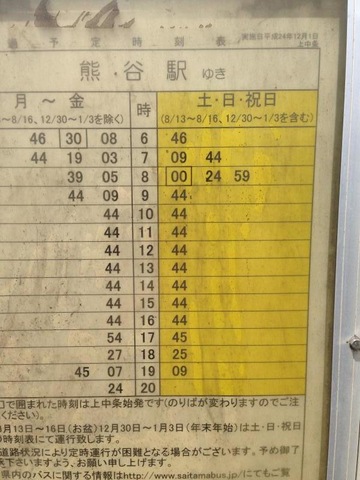 通過予定時刻表 実施日平成24年12月1日
上中条
熊・谷駅 ゆき
月～金 時 土・日・祝日
～8/16、12/30～1/3を除く) (8/13～8/16、12/30～1/3を含む)
46 30 08 6 46
44 19 03 7 09 44
39 05 8 00 24 59
44 09 9 44
44 10 44
44 11 44
44 12 44
44 13 44
44 14 44
44 15 44
44 16 44
54 17 45
27 18 25
45 07 19 09
24 20
口で囲まれた時刻は上中条始発です(のりばが変わりますのでご注
ください。)
8月13日～16日(お盆)12月30日～1月3日(年末年始)は土・日・祝日
の時刻表にて運行致します。
道路状況により定時運行が困難となる場合がございます。予め御了
承下さいますよう、お願い申し上げます。
県内のバスに関する情報はhttp://www.saitamabus.jp/にてもご覧